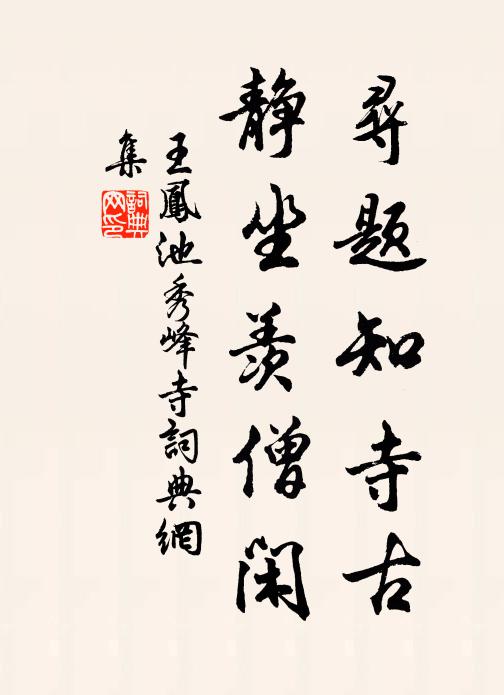 尋題知寺古
静坐羨僧閑
王鳳池秀峰寺詞典網
集
詞典
网印